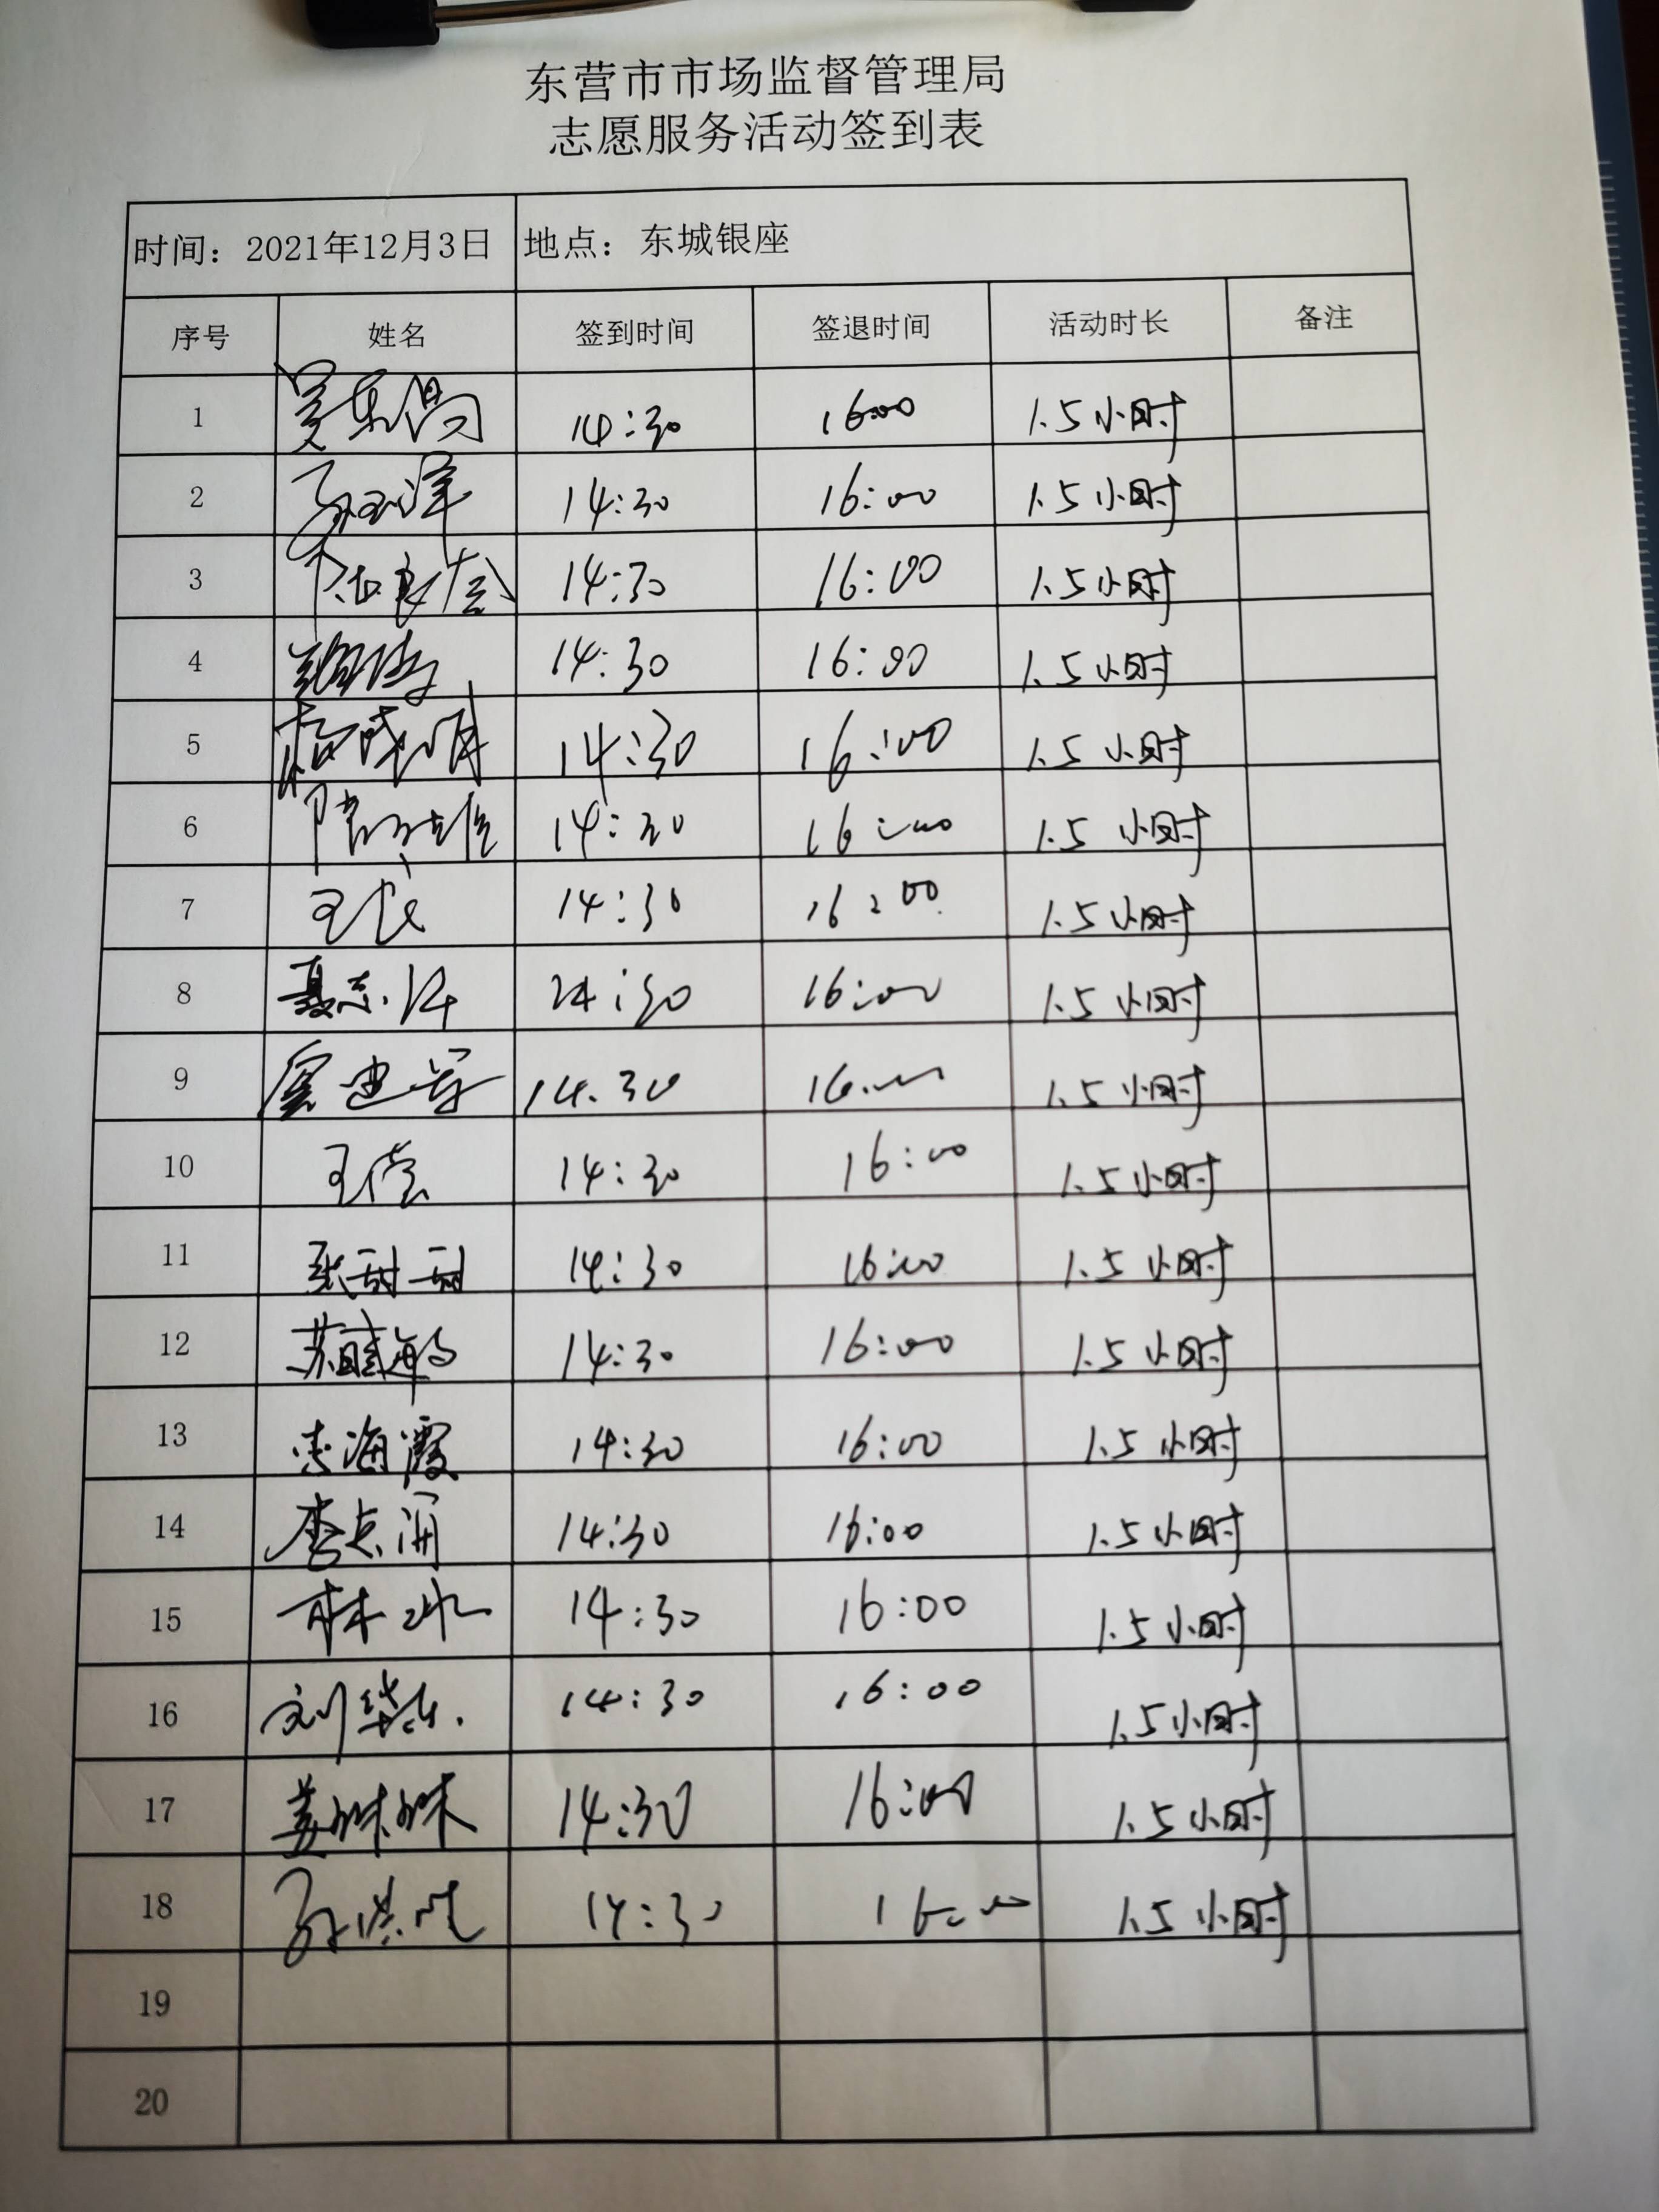 东营市市场监督管理局
志愿服务活动签到表
时间：2021年12月3日 地点：东城银座
序号 姓名 签到时间 签退时间 活动时长 备注
1 14:30 16:00 1.5小时
2 14:30 16:00 1.5小时
3 14:30 16:00 1.5小时
4 14:30 16:00 1.5小时
5 14:30 16:00 1.5小时
6 14:30 16:00 1.5小时
7 14:30 16:00 1.5小时
8 14:30 16:00 1.5小时
9 14.30 16.00 1.5小时
10 14:30 16:00 1.5小时
11 张甜甜 14:30 16:00 1.5小时
12 14:30 16:00 1.5小时
13 李海霞 14:30 16:00 1.5小时
14 14:30 16:00 1.5小时
15 林冰 14:30 16:00 1.5小时
16 14:30 16:00 1.5小时
17 姜姝姝 14:30 16:00 1.5小时
18 14:30 16:00 1.5小时
19
20